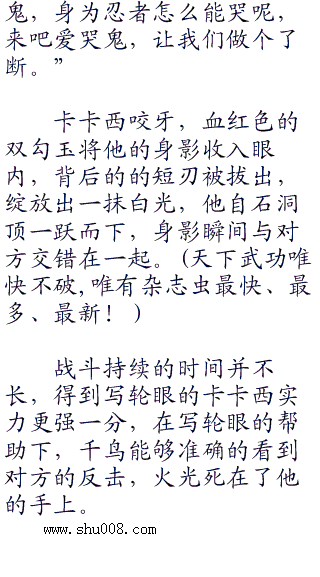 鬼，身为忍者怎么能哭呢，
来吧爱哭鬼，让我们做个了
断。”
卡卡西咬牙，血红色的
双勾玉将他的身影收入眼
内，背后的的短刃被拔出，
绽放出一抹白光，他自石洞
顶一跃而下，身影瞬间与对
方交错在一起。(天下武功唯
快不破,唯有杂志虫最快、最
多、最新！)
战斗持续的时间并不
长，得到写轮眼的卡卡西实
力更强一分，在写轮眼的帮
助下，千鸟能够准确的看到
对方的反击，火光死在了他
的手上。
www.shu008.com